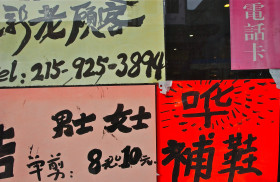 老顧客
Tel: 215-925-3894
電話卡
男士 女士
單剪: 8元 10元
補鞋